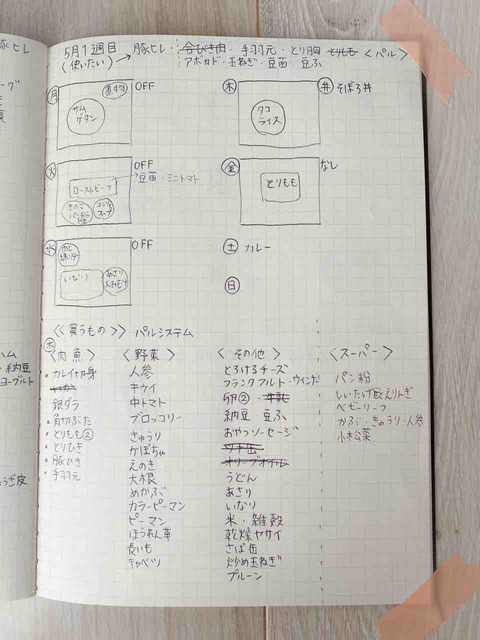 5月1週目
(使いたい)→ 豚ヒレ・合びき肉・手羽元・とり胸 とりもも <パル>
アボカド・玉ねぎ・豆苗・豆ふ
月
煮物
サムゲタン
OFF
火
ローストビーフ
スープ
OFF
豆苗・ミニトマト
水
いなり
あさり
OFF
木
タコライス
弁 そぼろ丼
金
とりもも
なし
土 カレー
日
<<買うもの>> パルシステム
木
<肉魚>
・カレイ切身
銀ダラ
・肩切ぶた
・とりもも②
・とりひき
・豚ひき
・手羽元
<野菜>
人参
キウイ
中トマト
ブロッコリー
きゅうり
かぼちゃ
えのき
大根
めかぶ
カラーピーマン
ピーマン
ほうれん草
長いも
キャベツ
<その他>
とろけるチーズ
フランクフルト・ウィンナー
卵②・牛乳
納豆 豆ふ
おやつソーセージ
ツナ缶
オリーブオイル
うどん
あさり
いなり
米・雑穀
乾燥ヤサイ
さば缶
炒め玉ねぎ
プルーン
<スーパー>
パン粉
しいたけ
ベビーリーフ
かぶ・きゅうり・人参
小松菜
豚ヒレ
ハム
・納豆
ヨーグルト